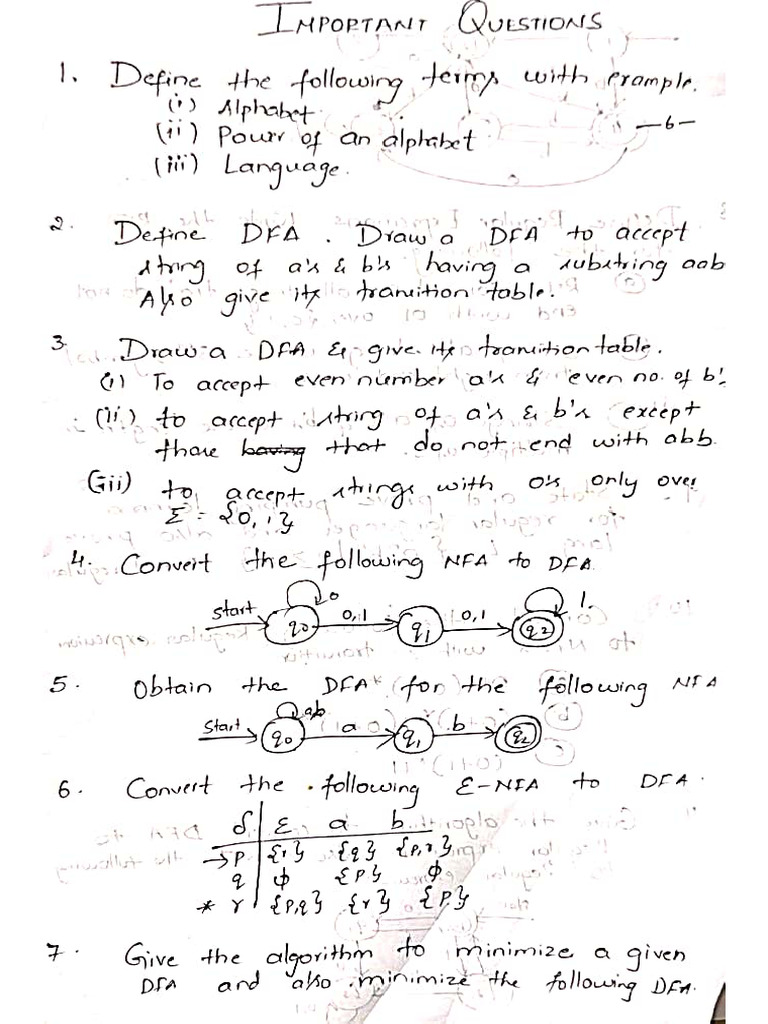 IMPORTANT QUESTIONS
1. Define the following terms with example.
(i) Alphabet
(ii) Power of an alphabet —6—
(iii) Language.
2. Define DFA. Draw a DFA to accept
string of a's & b's having a substring aab
Also give its tranition table.
3. Draw a DFA & give its tranition table.
(i) To accept even number a's & even no. of b's
(ii) to accept string of a's & b's except
those having that do not end with abb.
(iii) to accept strings with o's only over
Σ = {0, 1}
4. Convert the following NFA to DFA.
start q0 0 0,1 q1 0,1 q2 1.
5. Obtain the DFA for the following NFA
start q0 a,b a q1 b q2
6. Convert the following ε-NFA to DFA.
δ ε a b
→P {r} {q} {P,r}
q ϕ {P} ϕ
* r {P,q} {r} {P}
7. Give the algorithm to minimize a given
DFA and also minimize the following DFA.